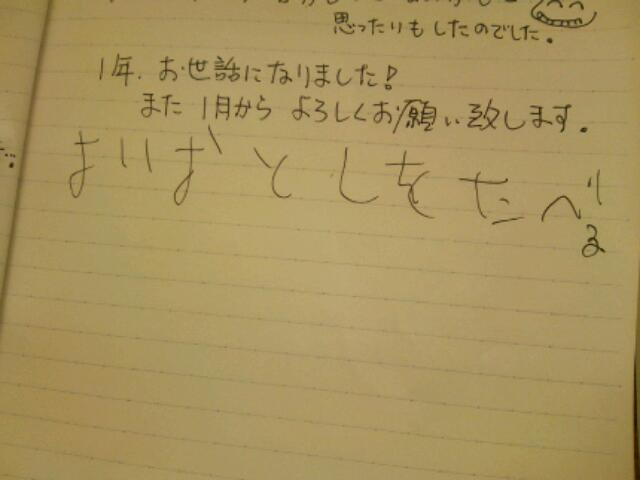 思ったりもしたのでした。
1年、お世話になりました!
また1月からよろしくお願い致します。
よいおとしをたべ
る